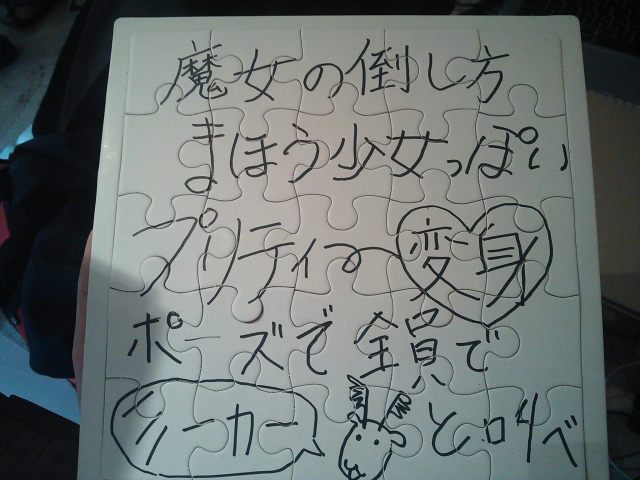 魔女の倒し方
まほう少女っぽい
プリティ〜変身
ポーズで全員で
ソーカー
と叫べ